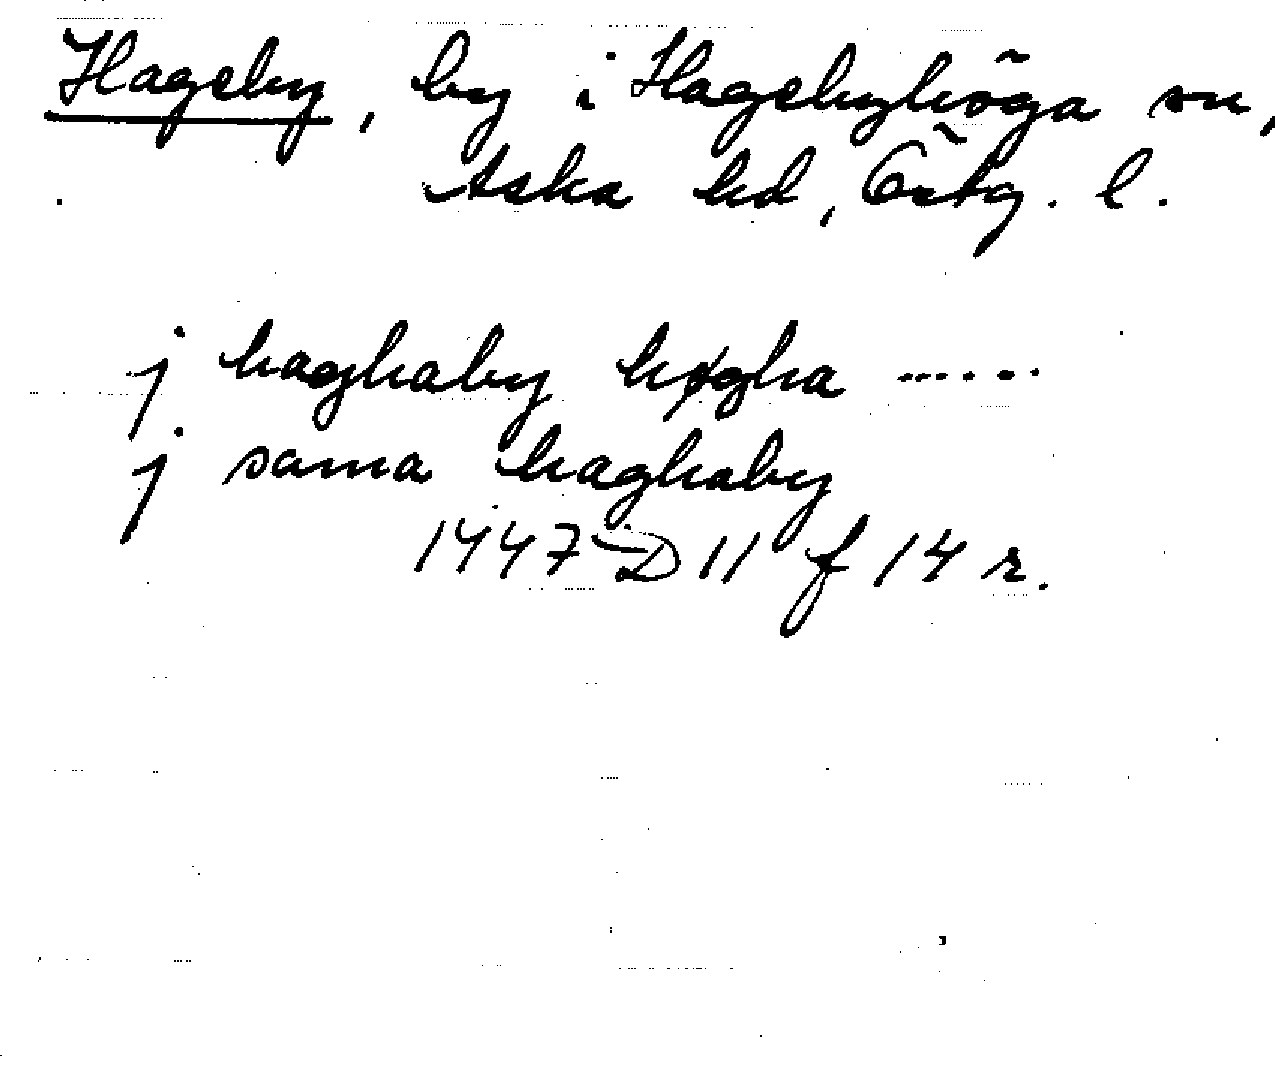 Hageby, by i Hagebyhöga sn,
Aska hd, Östg. l.
j haghaby høgha ......
j sama haghaby
1447 D 11 f 14 r.